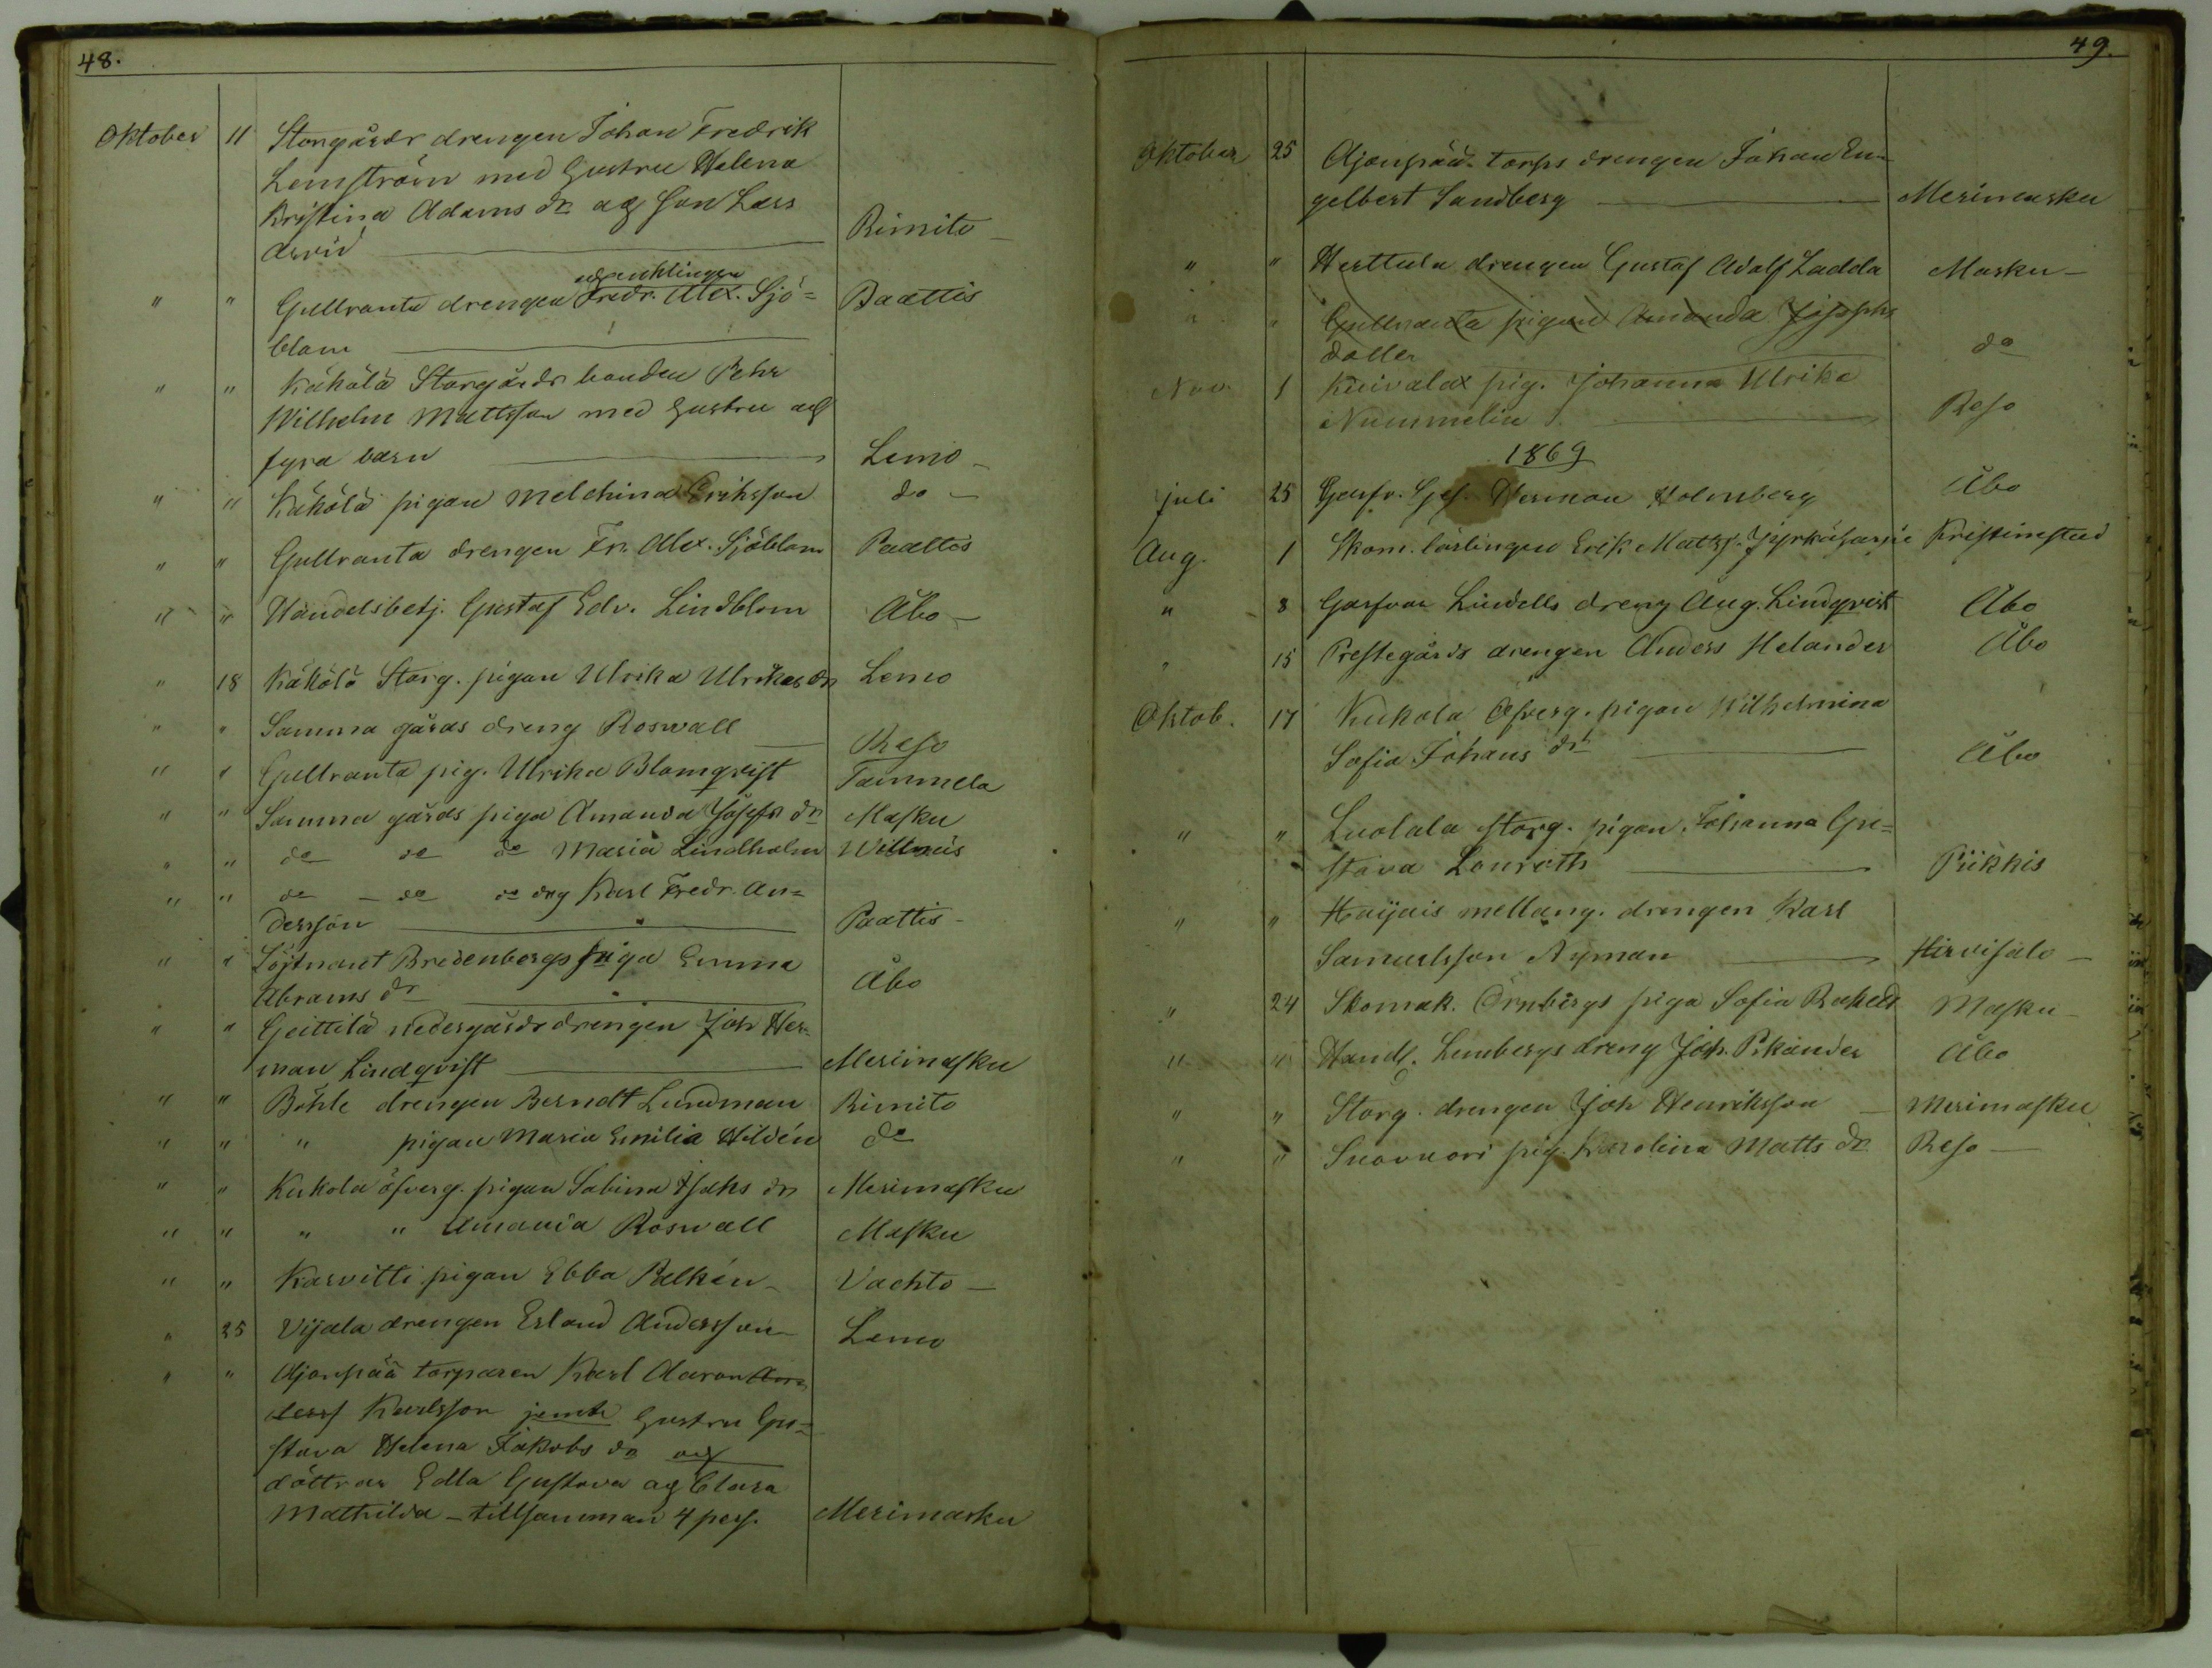 48.
Oktober 11 Storgårds drengen Johan Fredrik
Lemström med hustru Helena
Kristina Adams dr og son Lars
Arvid — Rimito —
" " Gullranta drengen Fredr. Alex. Sjö= Paattis
blom —
" " Käkölä Storgårds bonden Pehr
Wilhelm Mattsson med hustru og
fyra barn — Lemo —
" " Käkölä pigan Melchina Eriksson do —
" " Gullranta drengen Fr. Alex. Sjöblom Paattis
" " Handelsbetj. Gustaf Edv. Lindblom Åbo —
" 18 Käkölä Storg. pigan Ulrika Ulrikas dr Lemo
" " Samma gårds dreng Roswall — Reso
" " Gullranta pig. Ulrika Blomqvist Tammela
" " Samma gårds piga Amanda Josefs dr Masku
" " do do do Maria Lindholm Willnäs
" " do — do do drg Karl Fredr. An=
dersson — Paattis —
" " Löjtnant Bredenbergs piga Emma
Abrams dr — Åbo
" " Geittilä nedergårds drengen Joh Her-
man Lindqvist — Merimasku
" " Böhle drengen Berndt Lundman Rimito
" " " pigan Maria Emilia Hildén do
" " Kukola öfverg. pigan Sabina Isaks dr Merimasku
" " " " Amanda Roswall Masku
" " Karvitti pigan Ebba Pelkén — Vachto —
" 25 Vijala drengen Erland Andersson — Lemo
" " Ajonpää torparen Karl Aaron
Karlsson jemte hustru Gu=
stava Helena Jakobs dr og
döttrar Edla Gustava og Clara
Mathilda — tillsamman 4 pers. Merimasku
49.
Oktober 25 Ajonpää torps drengen Johan En=
gelbert Sandberg — Merimasku
" " Herttula drengen Gustaf Adolf Ladda Masku —
" " Gullranta pigan Amanda Josephs
dotter do
Nov. 1 Kuivalax pig. Johanna Ulrika
Nummelin — Reso
1869
Juli 25 Garfv. Ges. Herman Holmberg Åbo
Aug. 1 Skom. lärlingen Erik Matts. Jyrkäharju Kristinestad
" 8 Garfvar Lindells dreng Aug. Lindqvist Åbo
" 15 Prestegårds drengen Anders Helander Åbo
Oktob. 17 Kukola Öfverg. pigan Wilhelmina
Sofia Johans dr — Åbo
" " Luolala storg. pigan Johanna Gu=
stava Lonroth — Piikkis
" " Haijais mellang. drengen Karl
Samuelsson Nyman — Hirvisalo —
" 24 Skomak. Örnbergs piga Sofia Bakell Masku —
" " Handl. Lembergs dreng Joh. Pikander Åbo
" " Storg. drengen Joh Henriksson — Merimasku
" " Suovuori pig. Karolina Matts dr. Reso —